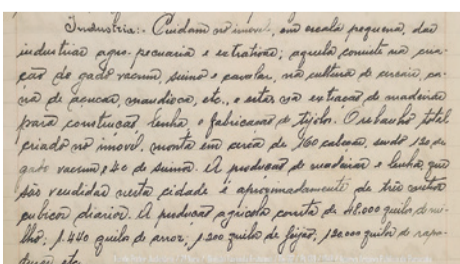 Industria:- Cuidam no imovel, em escala pequena, das
industrias agro-pecuaria e extrativa; aquela consiste na cria-
ção de gado vacum, suino e cavalar, na cultura de cereais, ca-
na de açucar, mandioca, etc., e esta, na extração de madeiras
para construção, lenha e fabricação de tijolos. O rebanho total
criado no imovel, monta em cerca de 160 cabeças, sendo 120 de
gado vacum e 40 de suino. A produção de madeiras e lenha que
são vendidas nesta cidade é aproximadamente de três metros
cubicos diarios. A produção agricola consta de 48.000 quilos de mi-
lho, 1.440 quilos de arroz, 1.200 quilos de feijão, 120.000 quilos de rapa-
duras, etc.